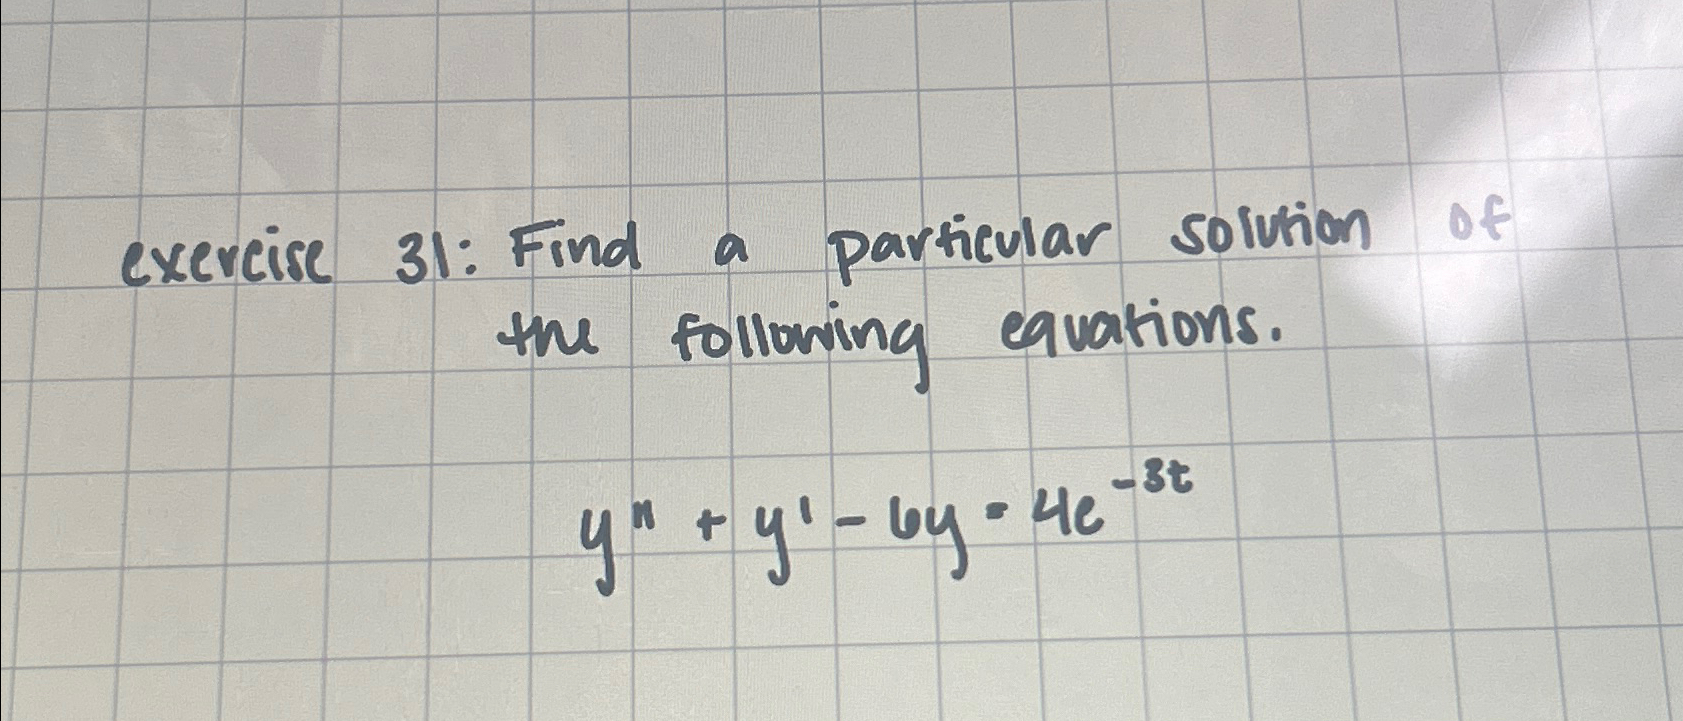 exercise 31: Find a particular solution of
the following equations.
y" + y' - 6y = 4e^{-3t}